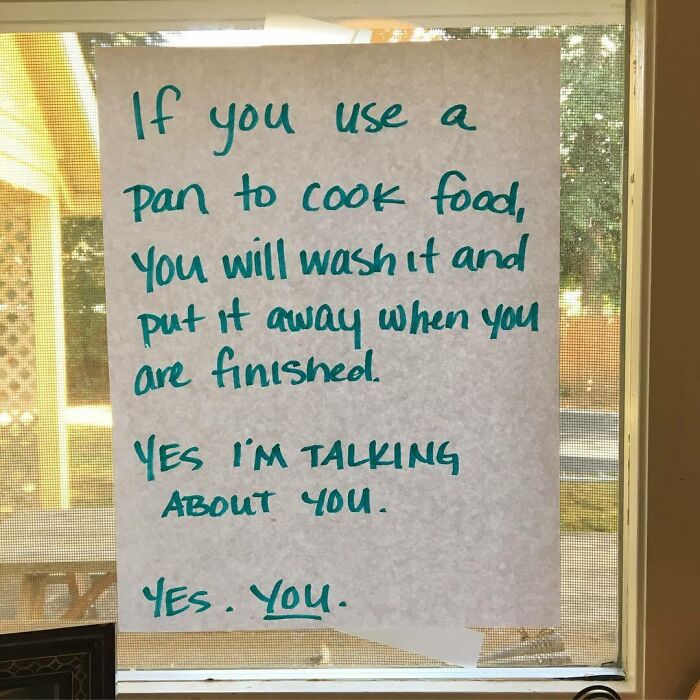 If you use a
pan to cook food,
you will wash it and
put it away when you
are finished.
YES I'M TALKING
ABOUT YOU.
YES. YOU.